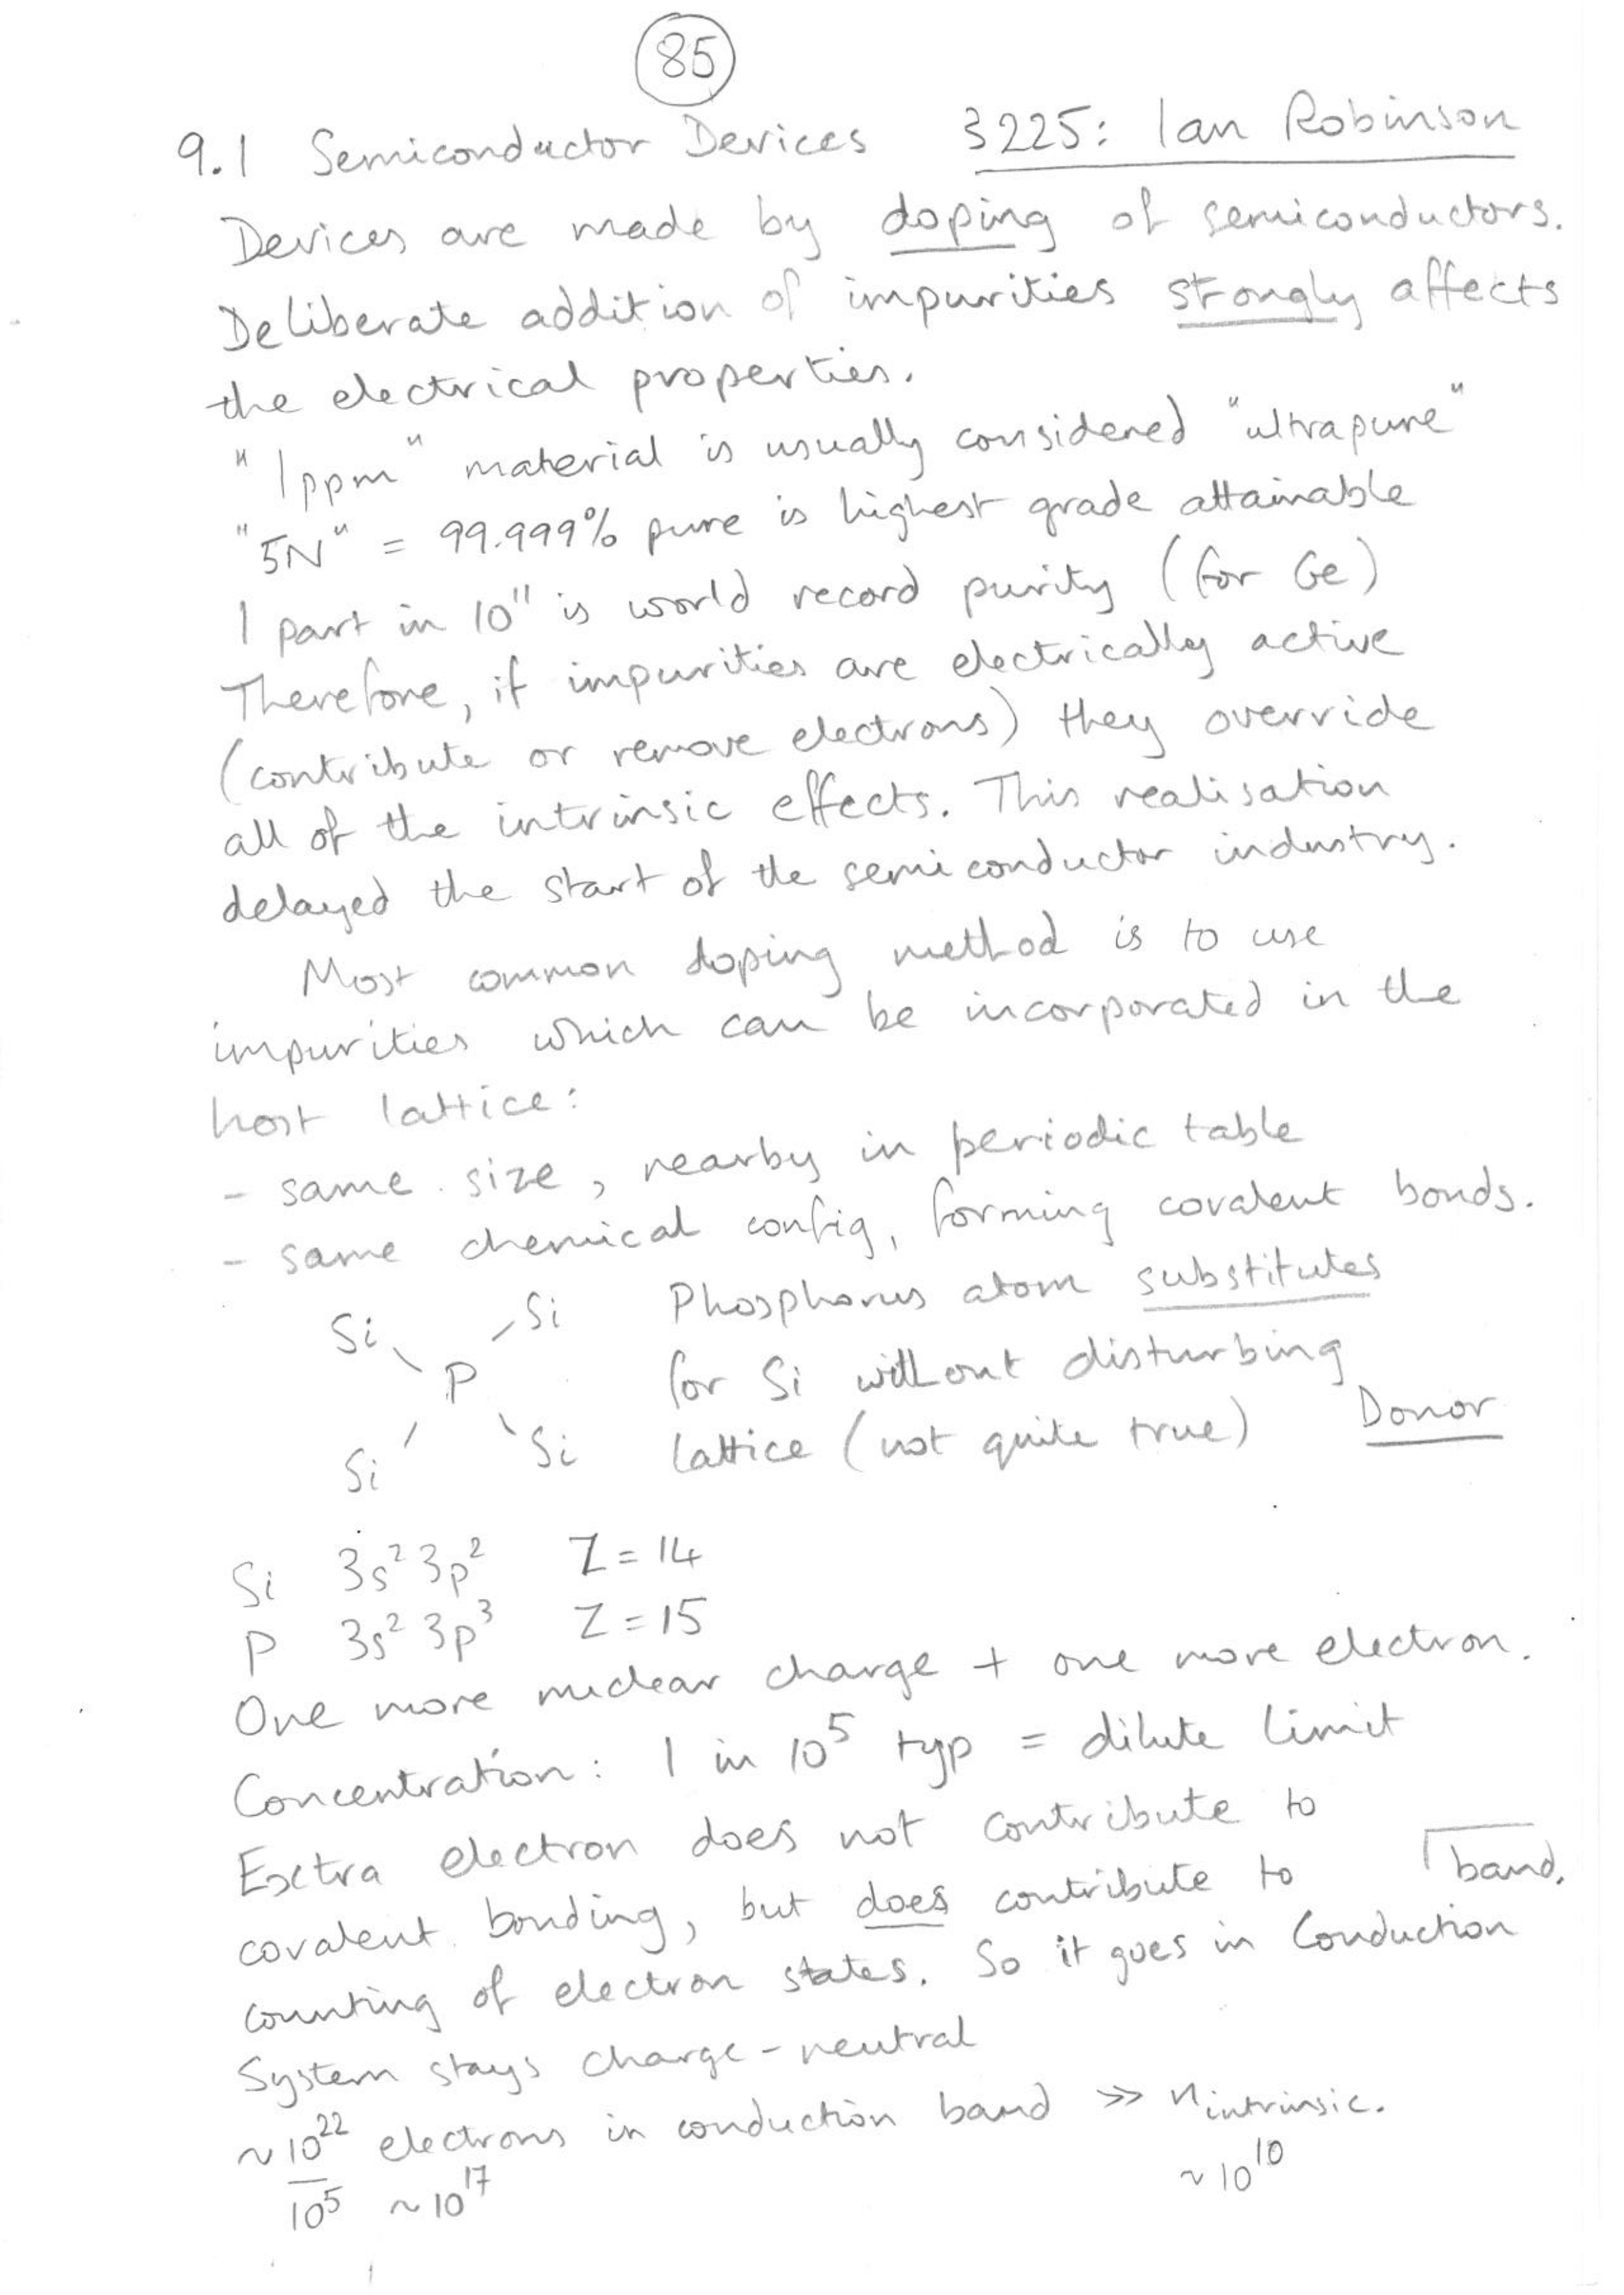 85
9.1 Semiconductor Devices 3225: Ian Robinson
Devices are made by doping of semiconductors.
Deliberate addition of impurities strongly affects
the electrical properties.
"1ppm" material is usually considered "ultrapure"
"5N" = 99.999% pure is highest grade attainable
1 part in 10¹¹ is world record purity (for Ge)
Therefore, if impurities are electrically active
(contribute or remove electrons) they override
all of the intrinsic effects. This realisation
delayed the start of the semiconductor industry.
Most common doping method is to use
impurities which can be incorporated in the
host lattice:
- same size, nearby in periodic table
- same chemical config, forming covalent bonds.
Si Si Phosphorus atom substitutes
P for Si without disturbing
Si Si lattice (not quite true) Donor
Si 3s² 3p² Z = 14
P 3s² 3p³ Z = 15
One more nuclear charge + one more electron.
Concentration: 1 in 10⁵ typ = dilute limit
Extra electron does not contribute to
covalent bonding, but does contribute to
counting of electron states. So it goes in Conduction band.
System stays charge-neutral
~10²² electrons in conduction band >> n intrinsic.
10⁵ ~10¹⁷ ~10¹⁰